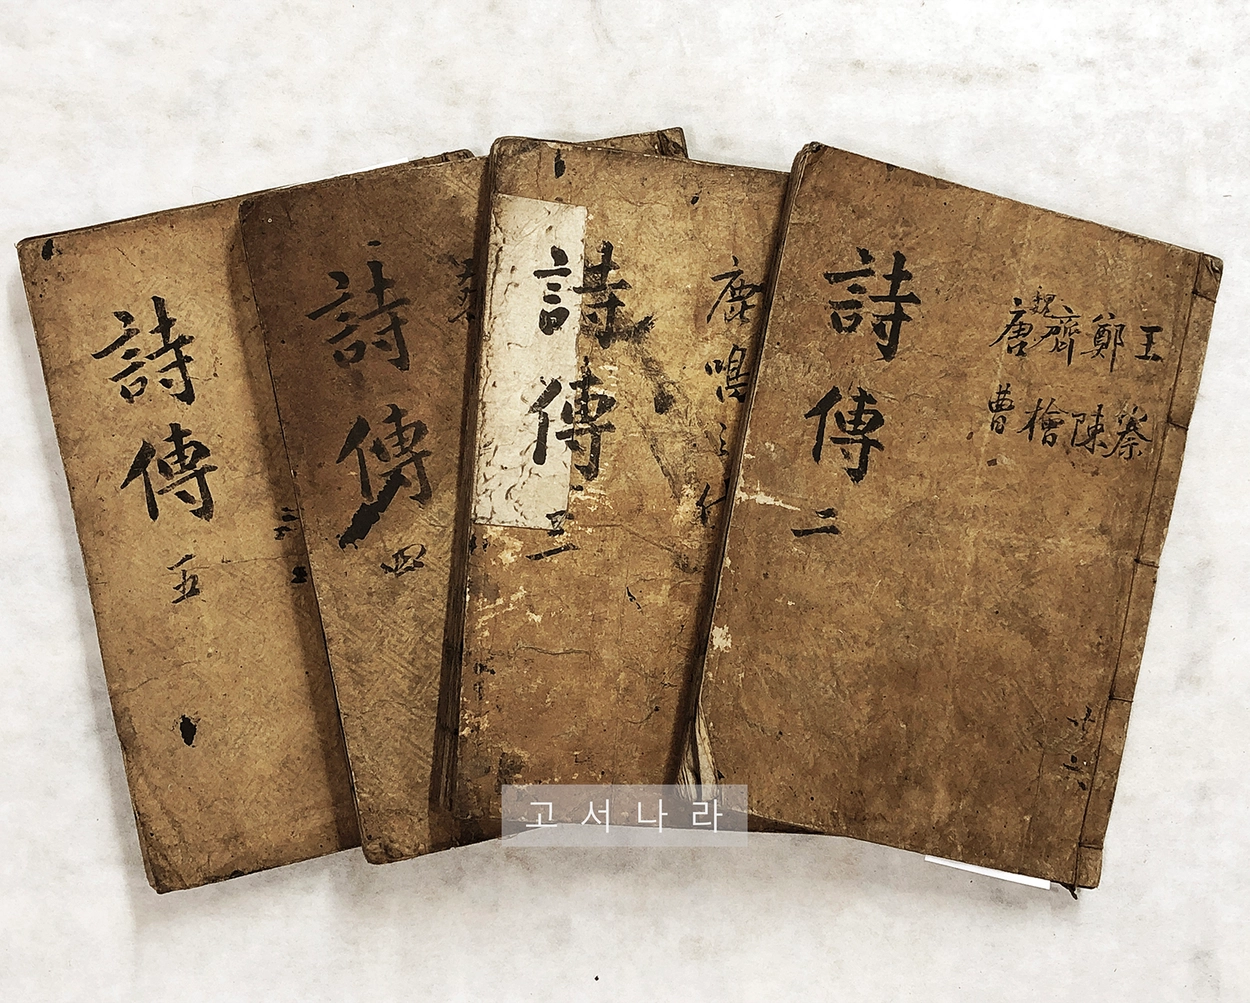 王鄭齊魏唐
陳檜曹
詩傳二
鹿鳴之
詩傳三
詩傳四
詩傳五
고서나라